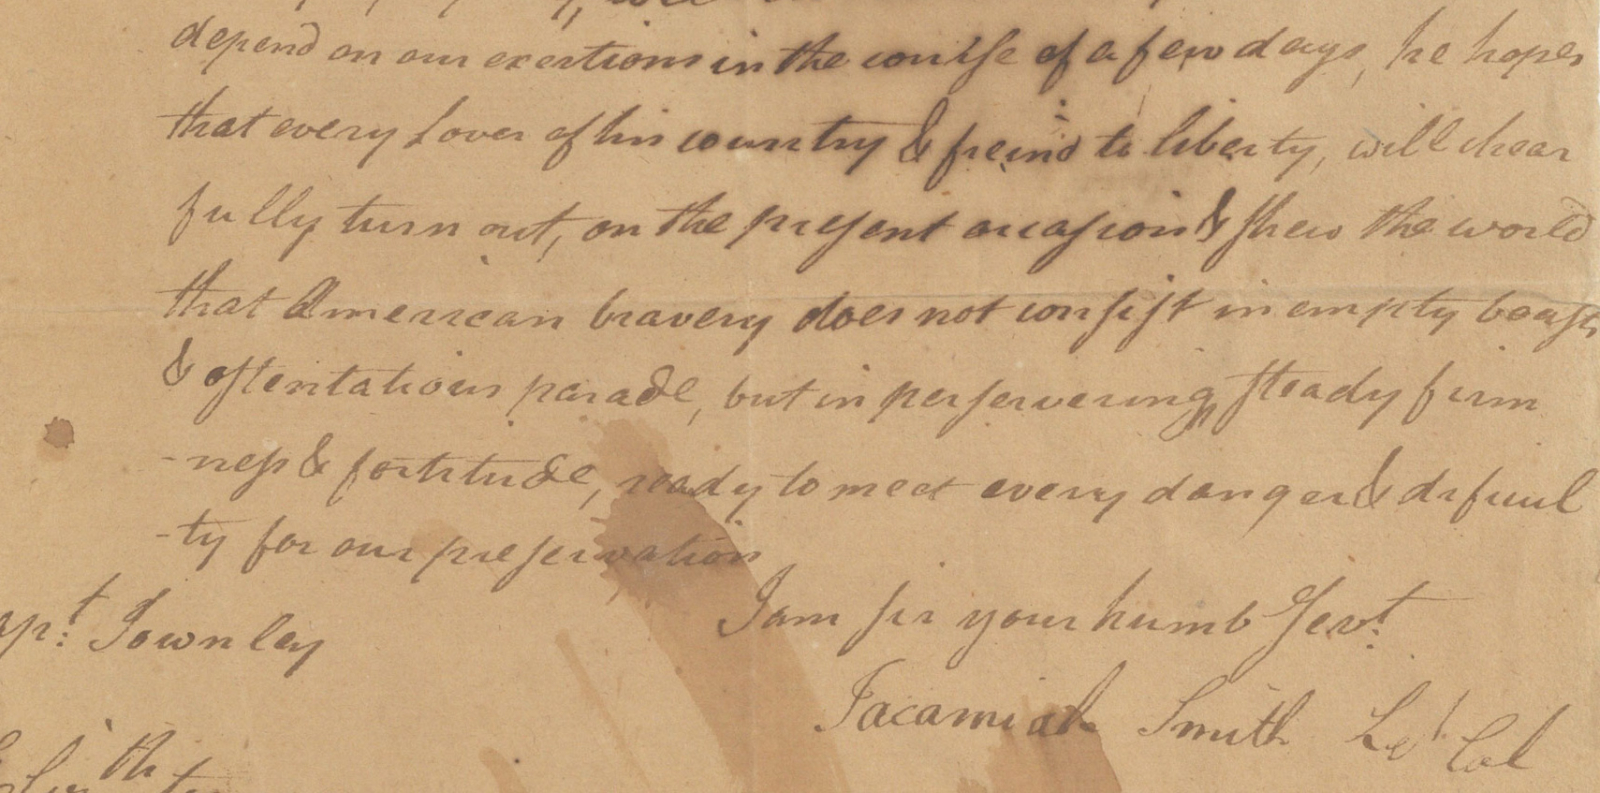 depend on our exertions in the course of a few days, he hopes
that every lover of his country & freind to liberty, will chear
fully turn out, on the present occasion & shew the world
that American bravery does not consist in empty boasts
& ostentatious parade, but in perservering, steady firm
-ness & fortitude, ready to meet every danger & dificul
-ty for our preservation
I am sir your humb Servt.
apt: Townley
Jacamiah Smith Lt Col
th